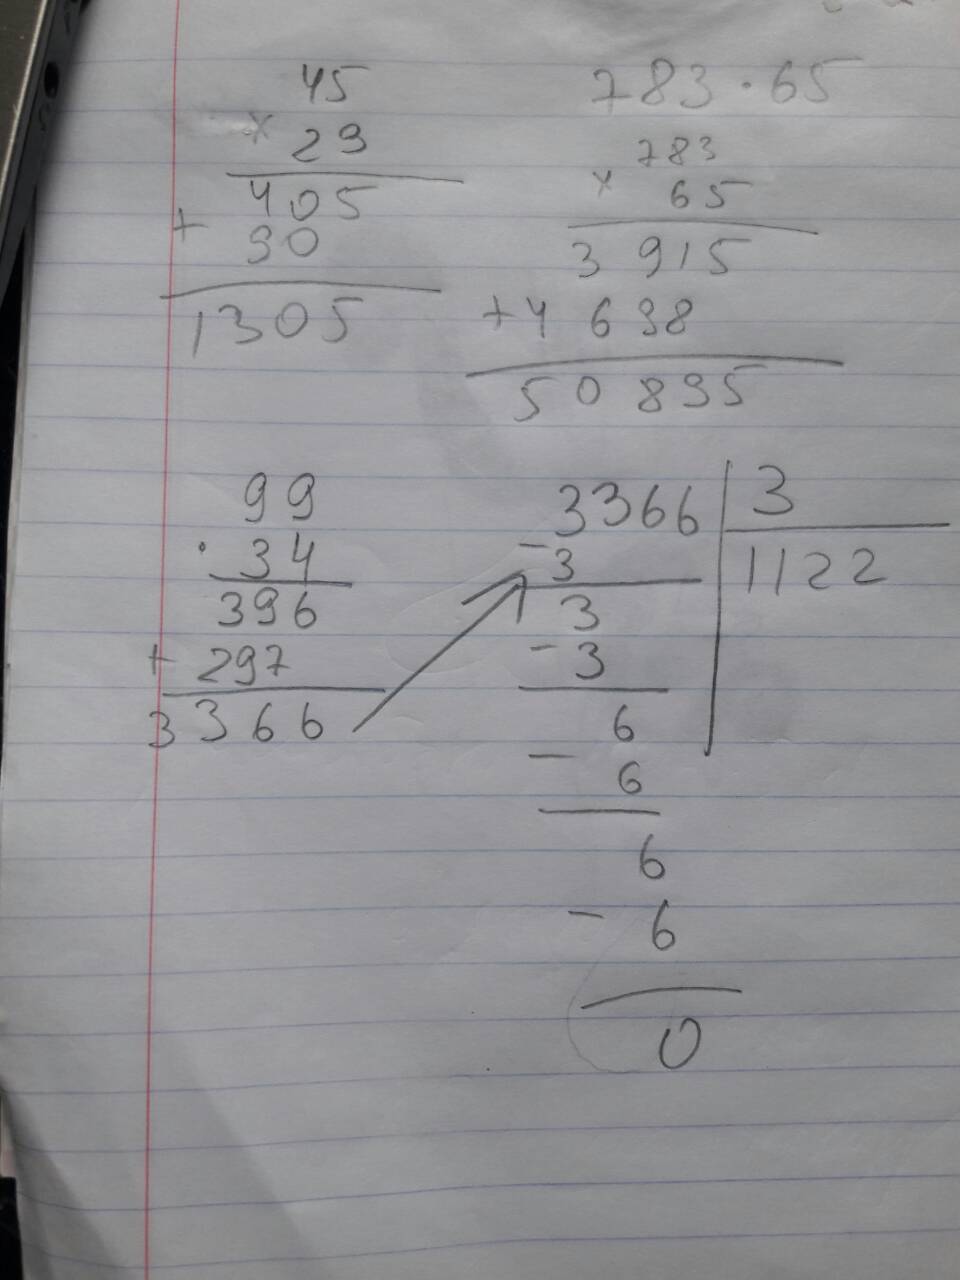 45
× 29
405
+ 90
1305
783 · 65
783
× 65
3 915
+4 698
50 895
99
· 34
396
+ 297
3366
3366 | 3
- 3 | 1122
3
- 3
6
- 6
6
- 6
0